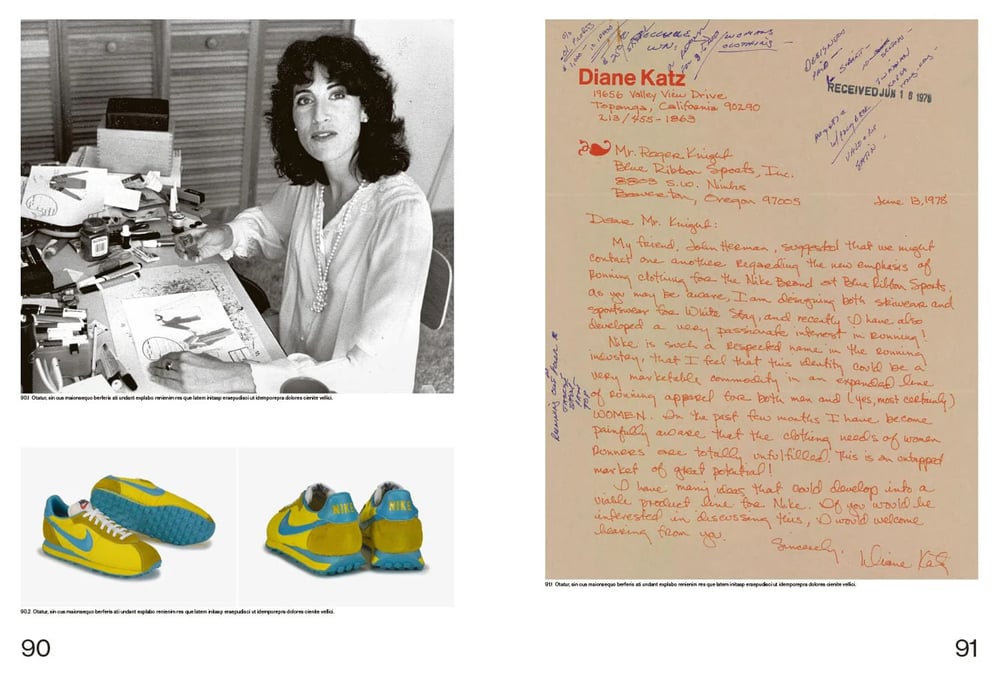 90.1 Otatur, sin cus maionsequo berferis ati undant explabo renienim res que latem initasp eraepudisci ut idemporepra dolores cienite vellici.
NIKE
NIKE
90.2 Otatur, sin cus maionsequo berferis ati undant explabo renienim res que latem initasp eraepudisci ut idemporepra dolores cienite vellici.
90
WOMANS
CLOTHING
DESIGNERS
RECEIVED JUN 16 1978
Diane Katz
19656 Valley View Drive
Topanga, California 90290
213/455-1863
Mr. Roger Knight
Blue Ribbon Sports, Inc.
8803 S.W. Nimbus
Beaverton, Oregon 97005
June 13, 1978
Dear Mr. Knight:
My friend, John Herman, suggested that we might
contact one another regarding the new emphasis of
running clothing for the Nike Brand at Blue Ribbon Sports.
As you may be aware, I am designing both skiwear and
sportswear for White Stag, and recently I have also
developed a very passionate interest in running!
Nike is such a respected name in the running
industry, that I feel that this identity could be a
very marketable commodity in an expanded line
of running apparel for both men and (yes, most certainly)
WOMEN. In the past few months I have become
painfully aware that the clothing needs of women
runners are totally unfulfilled. This is an untapped
market of great potential!
I have many ideas that could develop into a
viable product line for Nike. If you would be
interested in discussing this, I would welcome
hearing from you.
Sincerely,
Diane Katz
91.1 Otatur, sin cus maionsequo berferis ati undant explabo renienim res que latem initasp eraepudisci ut idemporepra dolores cienite vellici.
91